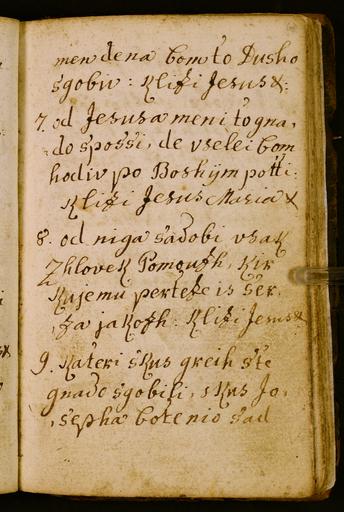 men dena bom to Dusho
sgobiv : Klizi Jesus &:
7. od Jesusa men i to gna,
do spossi, de vselei bom
hodiv po Boshÿm potti:
Klizi Jesus Maria &
8. od niga sadobi vsak
Zhlovek Pomozh, Kir
Kajemu perteze is Ser,
za jakosh : Klizi Jesus &
9. Kateri skus greih ste
gnado sgobili, skus Jo,
sepha bote nio sad